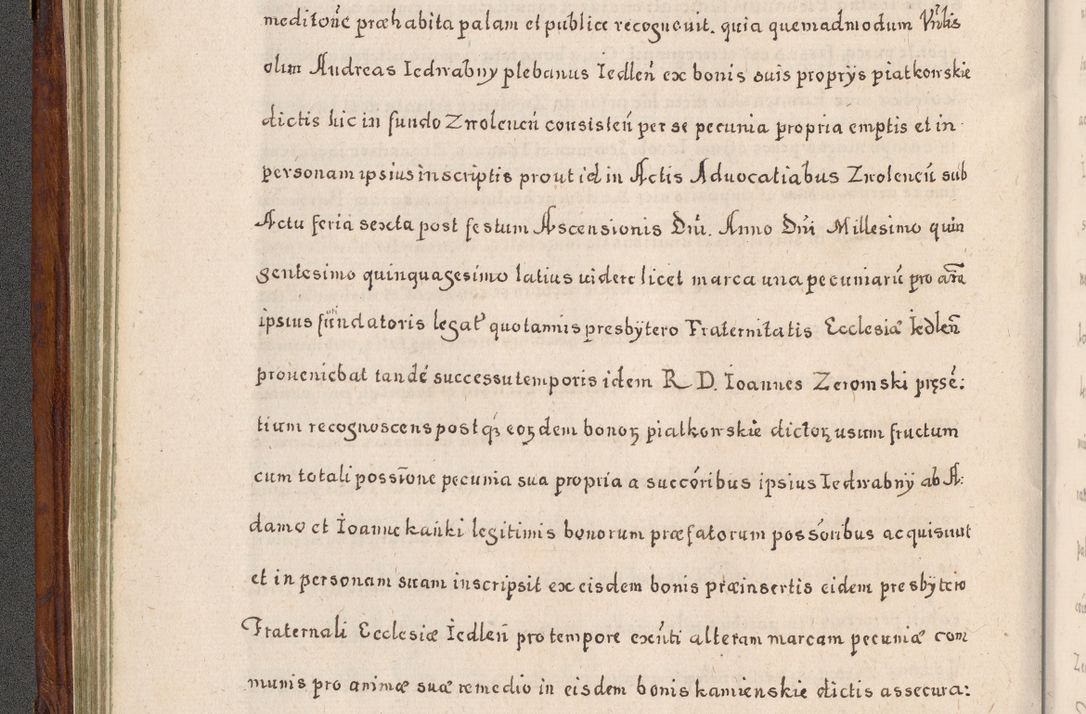 meditoñe præhabita palam et publice recogneuit. quia quemadmodum Vr̃bis
olim Andreas Iedwabny plebanus Iedleñ ex bonis suis proprÿs piatkowskie
dictis hic in fundo Zwolencñ consisteñ per se pecunia propria emptis et in
personam ipsius inscriptis prout id in Actis Aduocatiabus Zwolencñ sub
Actu feria sexta post festum Ascensionis Dñi. Anno Dñi Millesimo quin
gentesimo quinquagesimo latius uidere licet marca una pecuniarũ pro aĩa
ipsius fundatoris legat' quotannis presbÿtero Fraternitatis Ecclesiæ Iedleñ
proueniebat tandẽ successu temporis idem R D. Ioannes Zeromski pręsẽ:
tium recognoscens postqȝ eoꝝdem bonoꝝ piatkowskie dictoꝝ usum fructum
cum totali possĩone pecunia sua propria a succõribus ipsius Iedwabnÿ ab A:
damo et Ioanne kañki legitimis bonorum præfatorum possõribus acquisiuit
et in personam suam inscripsit ex eisdem bonis præinsertis eidem presbÿtero
Fraternali Ecclesiæ Iedleñ pro tempore exñti alteram marcam pecuniæ com
munis pro animæ suæ remedio in eisdem bonis kamienskie dictis assecura: